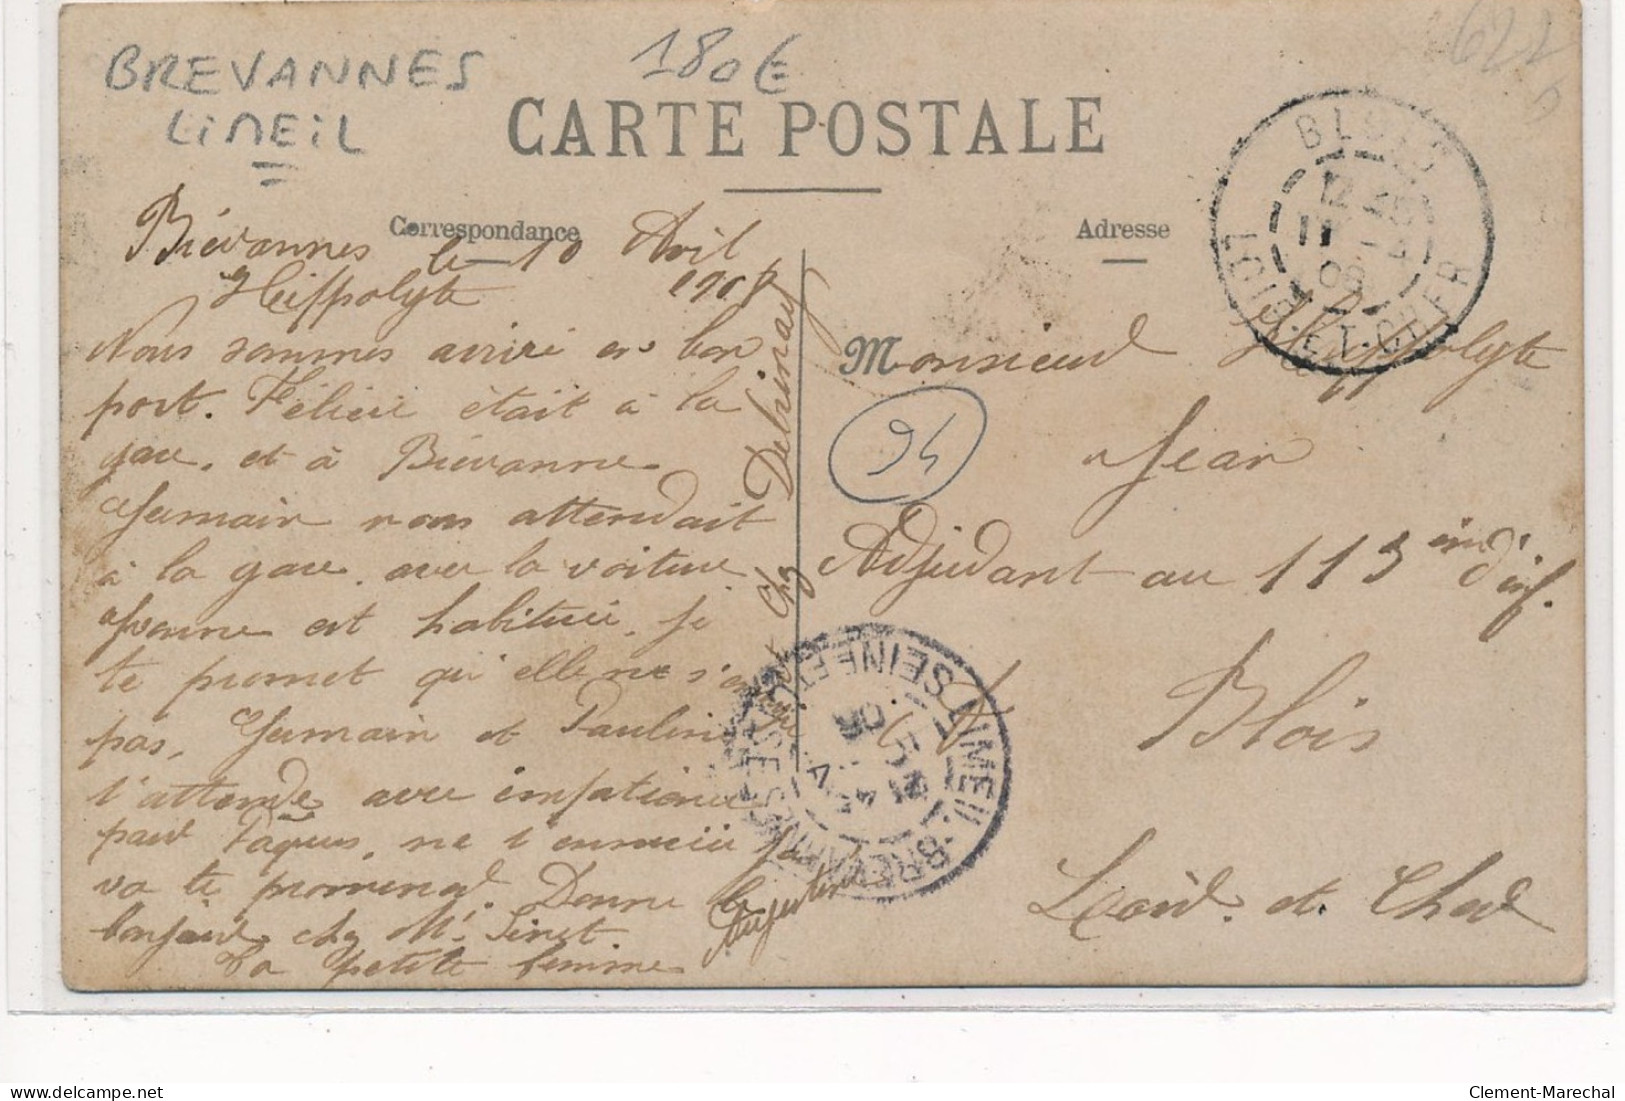 BREVANNES
LiMEiL
180€
622
CARTE POSTALE
Correspondance
Adresse
BLOIS
LOIR-ET-CHER
Brévannes le 10 Avril
1908
Hippolyte
Nous sommes arrivé en bon
port. Félicie était à la
gare. et à Brévanne
Germain nous attendait
à la gare. avec la voiture
est habitué. je
te promet qu'elle ne s'ennuie
pas. Germain et Pauline
t'attende avec impatience
pour Paques. ne t'ennuie pas
va te promener. Donne le
bonjour chez Mr Sinet.
Ta petite femme
Augustine
chez Delaunay
Monsieur Hippolyte
94
Jean
Adjudant au 113 ème d'inf.
à Blois
Loir. et. Cher
LIMEIL-BREVANNES
SEINE ET OISE
delcampe.net
Clement-Marechal